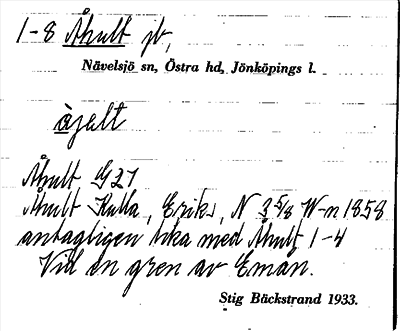 1-8 Åhult jb,
Nävelsjö sn, Östra hd, Jönköpings l.
àjelt
Åhult G27
Åhult Kulla, Eriks, N 3 5/8 W-n 1858
antagligen lika med Åhult 1-4
Vid en gren av Eman.
Stig Bäckstrand 1933.